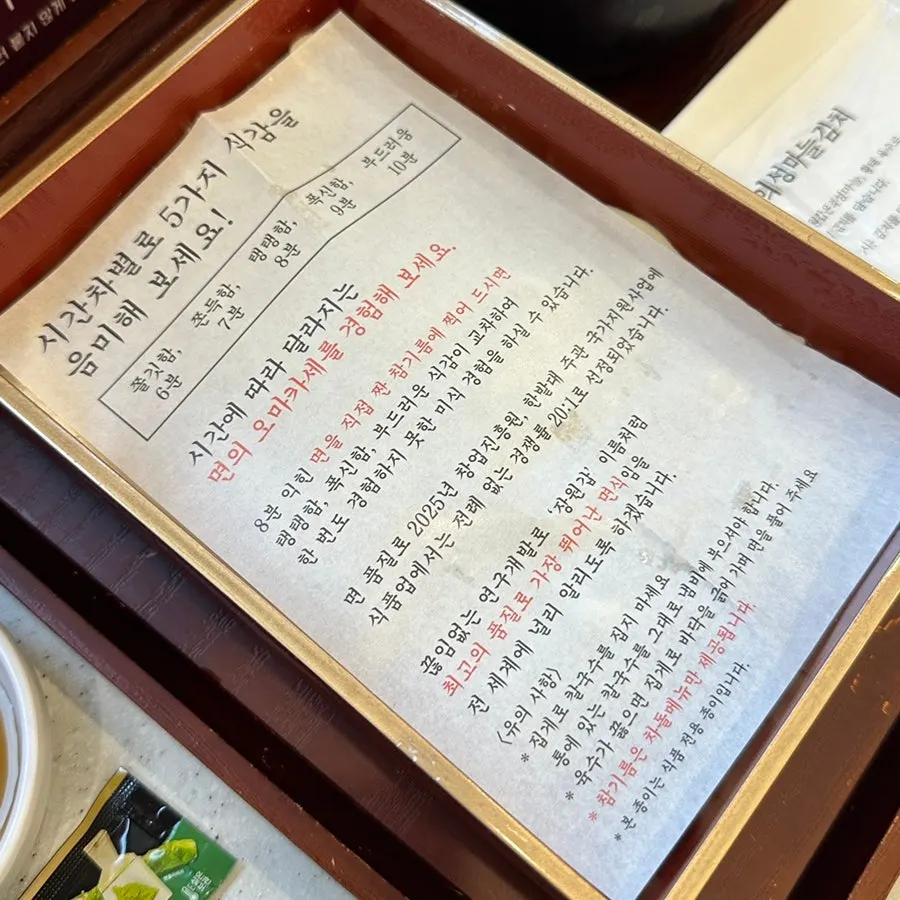 시간차별로 5가지 식감을
음미해 보세요!
쫄깃함, 쫀득함, 탱탱함, 폭신함, 부드러움
6분 7분 8분 9분 10분
시간에 따라 달라지는
면의 오마카세를 경험해 보세요.
8분 익힌 면을 직접 짠 참기름에 찍어 드시면
탱탱함, 폭신함, 부드러운 식감이 교차하여
한 번도 경험하지 못한 미식 경험을 하실 수 있습니다.
면 품질로 2025년 창업진흥원, 한밭대 주관 국가지원사업에
식품업에서는 전례 없는 경쟁률 20:1로 선정되었습니다.
끊임없는 연구개발로 '장원갑' 이름처럼
최고의 품질로 가장 뛰어난 면식임을
전 세계에 널리 알리도록 하겠습니다.
<유의 사항>
* 집게로 칼국수를 집지 마세요
통에 있는 칼국수를 그대로 냄비에 부으셔야 합니다.
* 육수가 끓으면 집게로 바닥을 긁어 가며 면을 풀어 주세요
* 참기름은 차돌메뉴만 제공됩니다.
* 본 종이는 식품 전용 종이입니다.
의성마늘김치